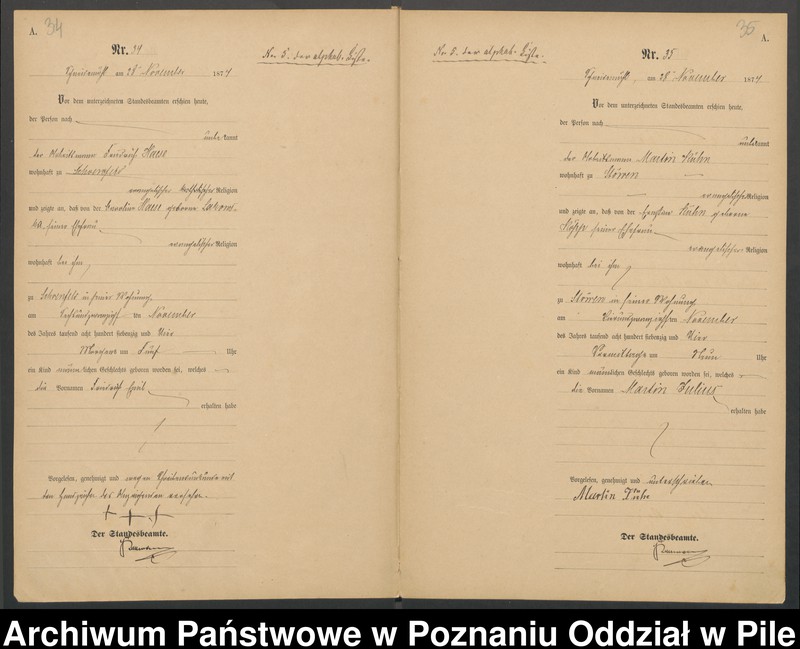 A. 34
Nr. 34
am 28 November 1874
Vor dem unterzeichneten Standesbeamten erschien heute,
der Person nach
unbekannt
der
wohnhaft zu
evangelischer Religion
und zeigte an, daß von der geborene
seiner Ehefrau
evangelischer Religion
wohnhaft bei ihm
zu in seiner Wohnung
am ten November
des Jahres tausend acht hundert siebenzig und Vier
Morgens um Fünf Uhr
ein Kind männlichen Geschlechts geboren worden sei, welches
die Vornamen
erhalten habe
Vorgelesen, genehmigt und wegen
den Handzeichen des Anzeigenden versehen.
+++
Der Standesbeamte.
No 5. der alphab. Liste.
No 5. der alphab. Liste.
35
A.
Nr. 35
am 28 November 1874
Vor dem unterzeichneten Standesbeamten erschien heute,
der Person nach
unbekannt
der Martin Kühn
wohnhaft zu Stöwen
evangelischer Religion
und zeigte an, daß von der Kühn geborene
seiner Ehefrau
evangelischer Religion
wohnhaft bei ihm
zu Stöwen in seiner Wohnung
am ten November
des Jahres tausend acht hundert siebenzig und Vier
Vormittags um Neun Uhr
ein Kind männlichen Geschlechts geboren worden sei, welches
die Vornamen Martin Julius
erhalten habe
Vorgelesen, genehmigt und unterschrieben
Martin Kühn
Der Standesbeamte.
Archiwum Państwowe w Poznaniu Oddział w Pile